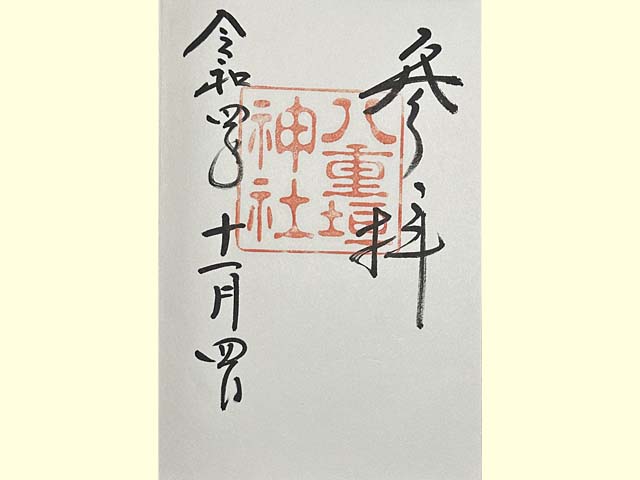 参拝
八重垣
神社
令和四年十一月四日